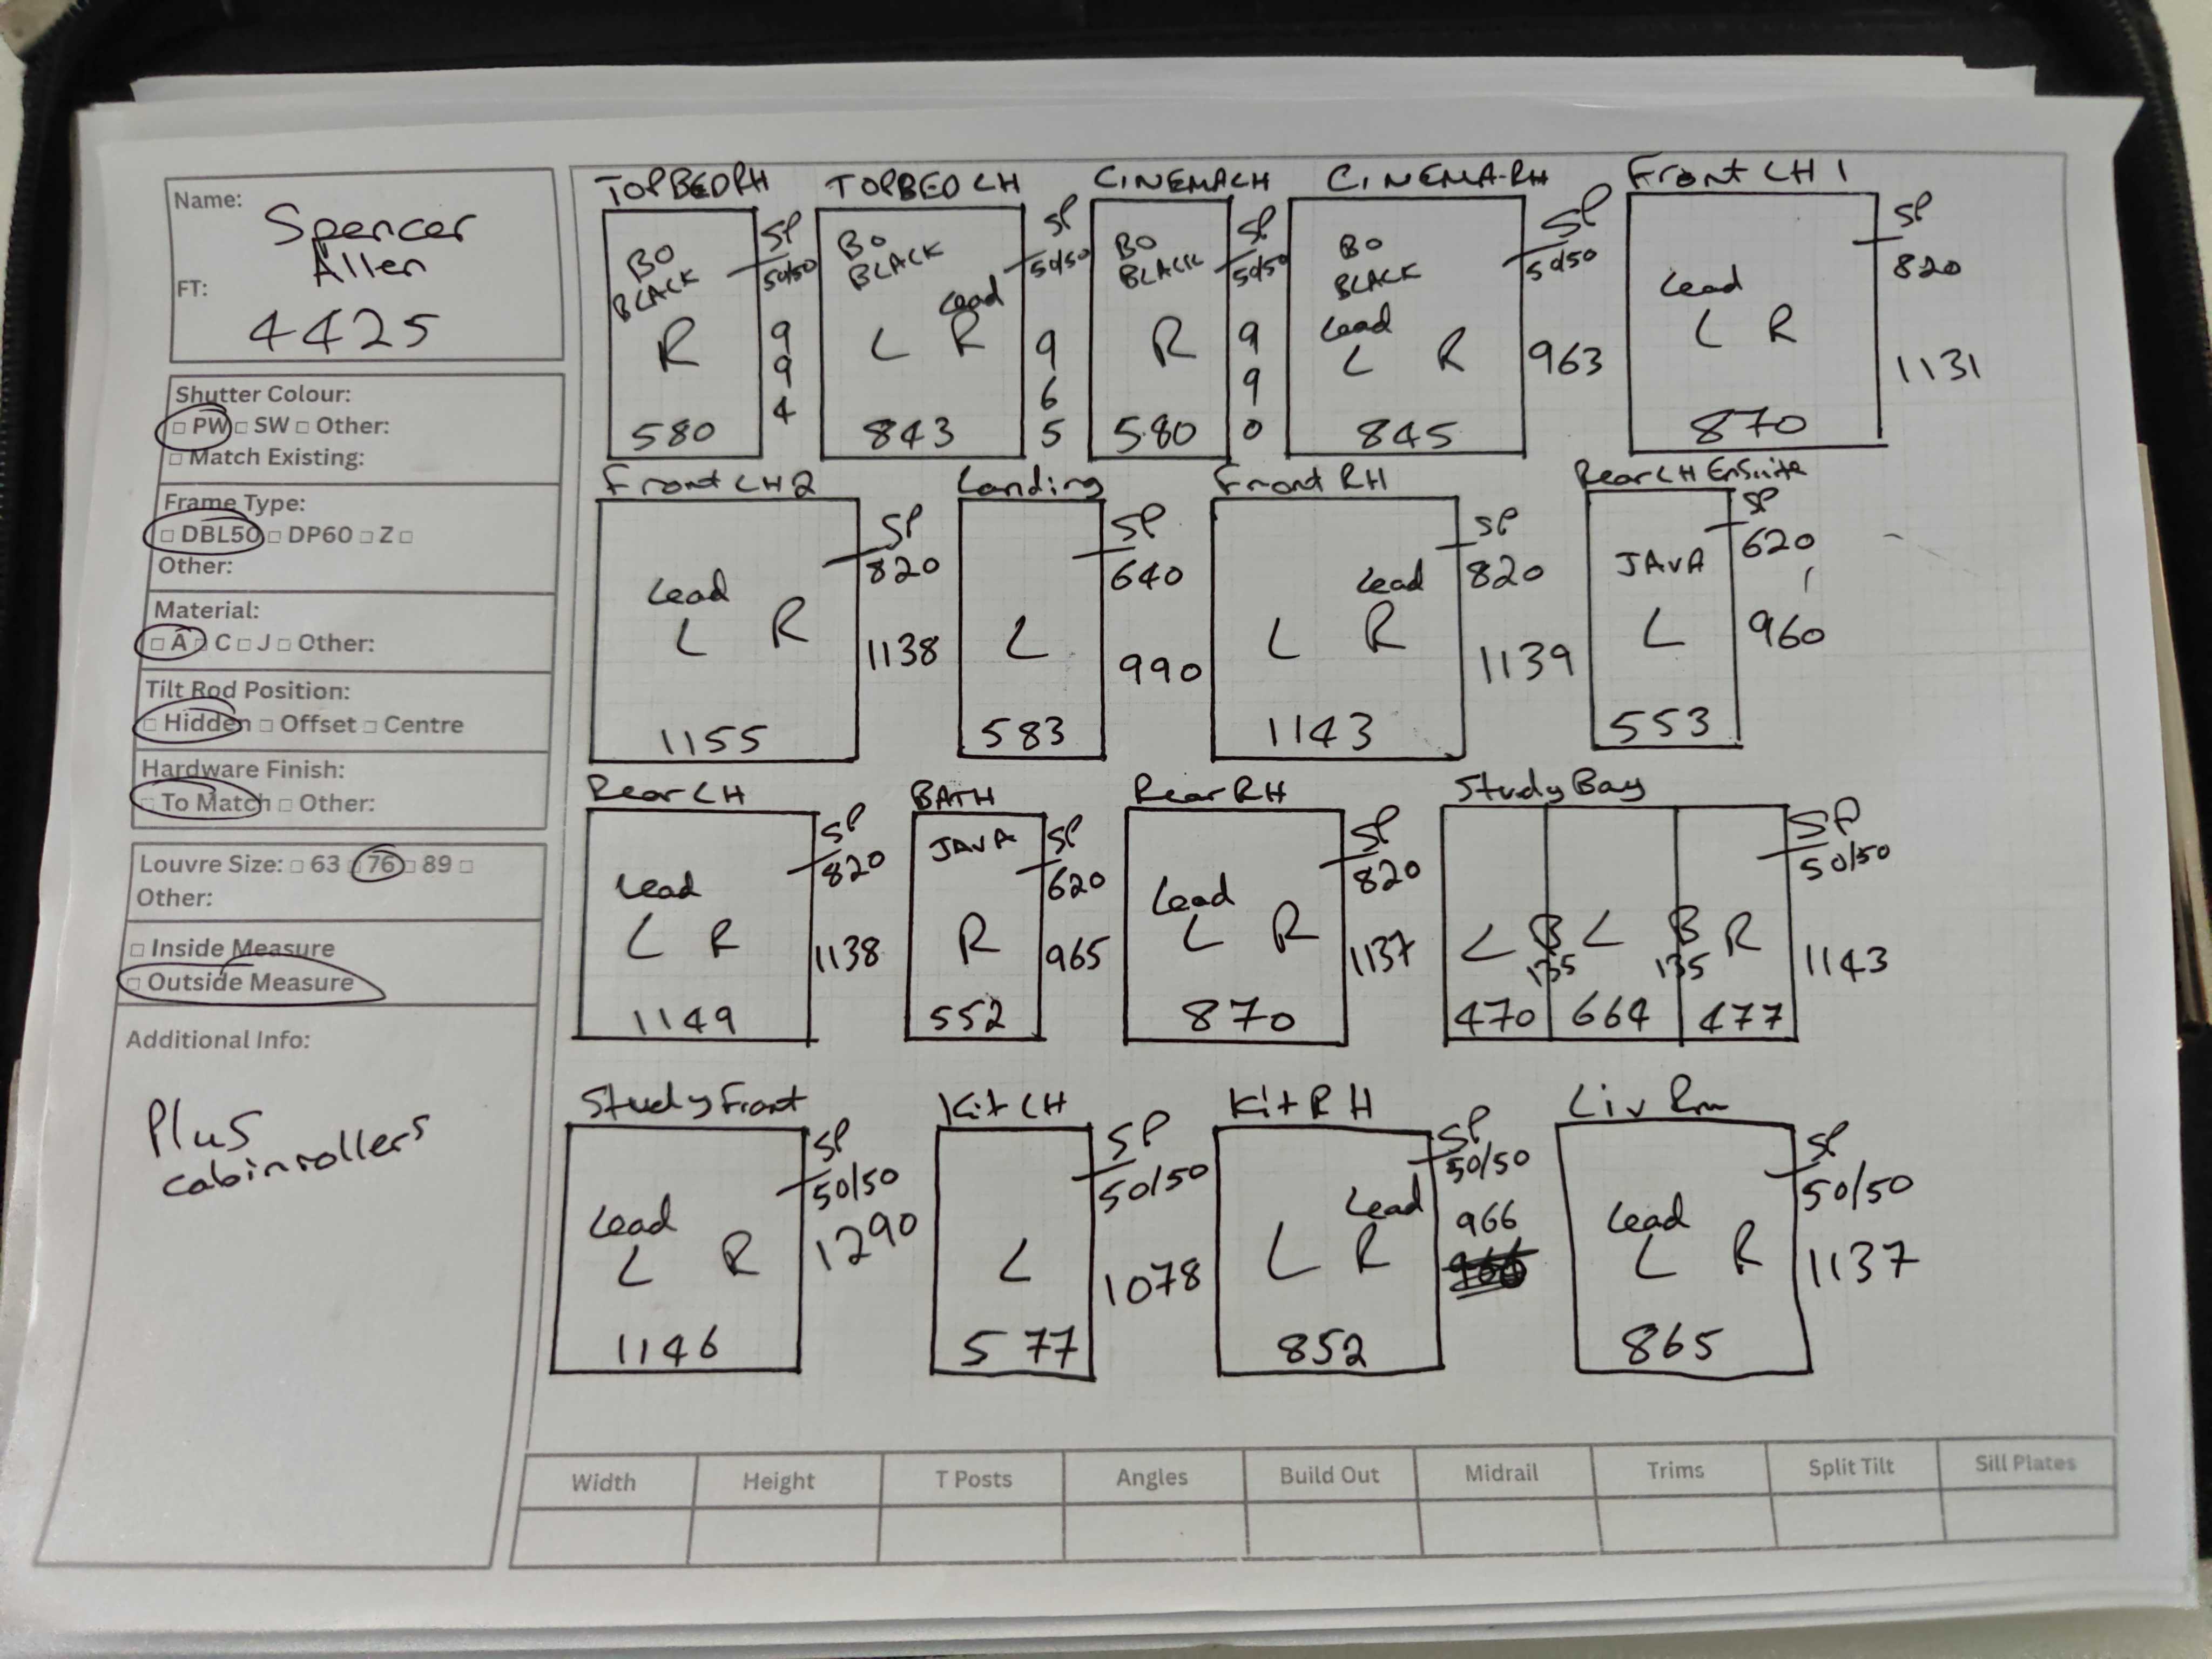 Name:
Spencer
Allen
FT:
4425
Shutter Colour:
□ PW □ SW □ Other:
□ Match Existing:
Frame Type:
□ DBL50 □ DP60 □ Z □
Other:
Material:
□ A □ C □ J □ Other:
Tilt Rod Position:
□ Hidden □ Offset □ Centre
Hardware Finish:
□ To Match □ Other:
Louvre Size: □ 63 □ 76 □ 89 □
Other:
□ Inside Measure
□ Outside Measure
Additional Info:
Plus
cabinrollers
TOPBEDRH
BO
BLACK
R
580
SP
50/50
994
TOPBED LH
BO
BLACK
Lead
L R
843
SP
50/50
965
CINEMA LH
BO
BLACK
R
580
SP
50/50
990
CINEMA-RH
BO
BLACK
Lead
L R
845
SP
50/50
963
Front LH 1
Lead
L R
870
SP
820
1131
Front LH 2
Lead
L R
1155
SP
820
1138
Landing
L
583
SP
640
990
Front RH
Lead
L R
1143
SP
820
1139
Rear LH Ensuite
JAVA
L
553
SP
620
960
Rear LH
Lead
L R
1149
SP
820
1138
BATH
JAVA
R
552
SP
620
965
Rear RH
Lead
L R
870
SP
820
1137
Study Bay
L B L B R
135 135
470 664 477
SP
50/50
1143
Study Front
Lead
L R
1146
SP
50/50
1290
Kit LH
L
577
SP
50/50
1078
Kit RH
Lead
L R
852
SP
50/50
966
Liv Rm
Lead
L R
865
SP
50/50
1137
Width Height T Posts Angles Build Out Midrail Trims Split Tilt Sill Plates